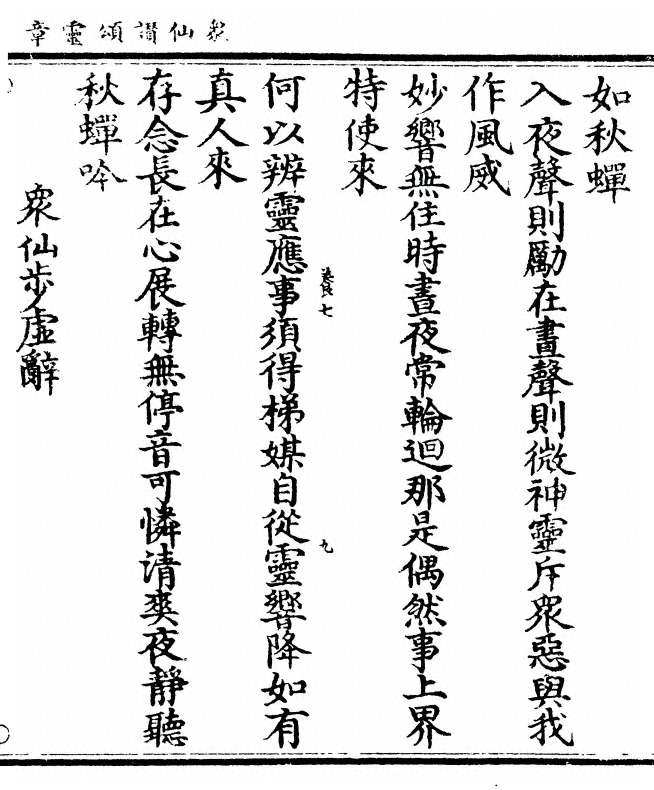 衆仙讃頌靈章
如秋蟬
入夜聲則勵在晝聲則微神靈斥衆惡與我
作風威
妙響無住時晝夜常輪迴那是偶然事上界
特使來
七
九
何以辨靈應事須得梯媒自從靈響降如有
真人來
存念長在心展轉無停音可憐清爽夜靜聽
秋蟬吟
衆仙步虛辭